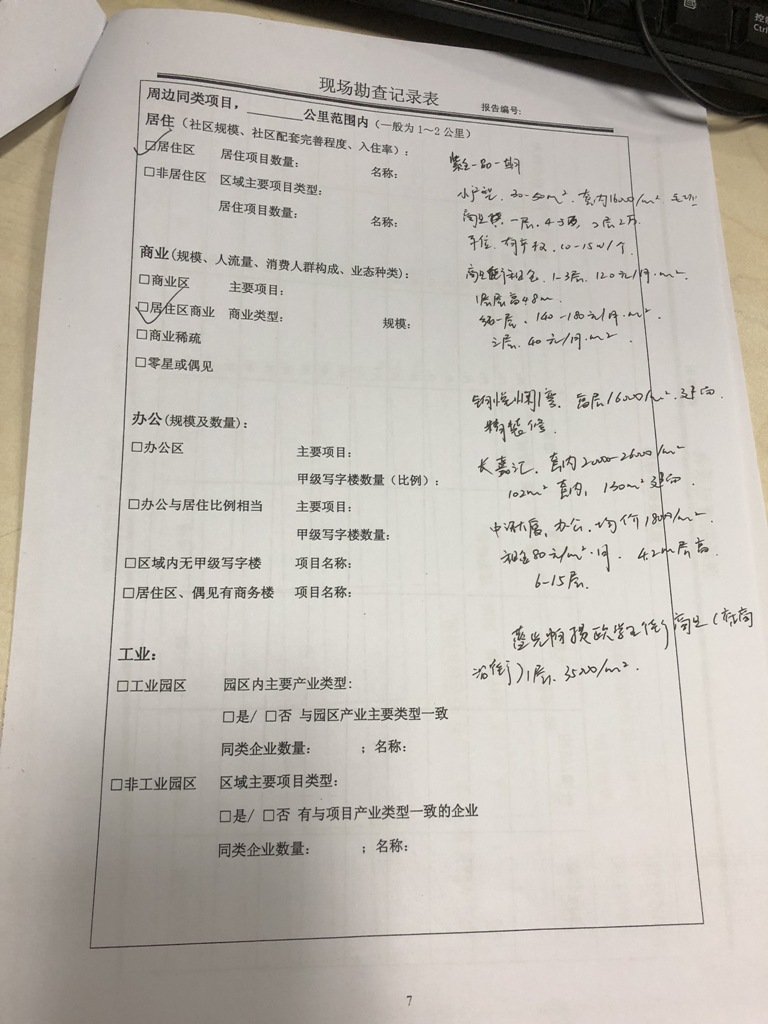 现场勘查记录表
报告编号:
周边同类项目，______公里范围内（一般为 1～2 公里）
居住（社区规模、社区配套完善程度、入住率）:
□居住区 居住项目数量: 名称:
□非居住区 区域主要项目类型:
小户型. 30-50m². 套内16000/m²
居住项目数量: 名称:
一层. 4-5万, 二层2万.
车位. 有车权. 10-15w/个.
商业(规模、人流量、消费人群构成、业态种类):
1-3层. 120元/月·m².
□商业区 主要项目:
1层层高4.8m.
□居住区商业 商业类型: 规模:
一层. 140-180元/月·m².
□商业稀疏
三层. 40元/月·m².
□零星或偶见
16000/m².
精装修.
办公(规模及数量):
□办公区 主要项目:
长嘉汇. 套内
甲级写字楼数量（比例）:
102m² 套内, 130m²
□办公与居住比例相当 主要项目:
办公. 均价
甲级写字楼数量:
租金80元/m²·月. 4.2m层高.
□区域内无甲级写字楼 项目名称:
6-15层.
□居住区、偶见有商务楼 项目名称:
工业:
沿街)1层.
□工业园区 园区内主要产业类型:
□是/ □否 与园区产业主要类型一致
同类企业数量: ；名称:
□非工业园区 区域主要项目类型:
□是/ □否 有与项目产业类型一致的企业
同类企业数量: ；名称:
7